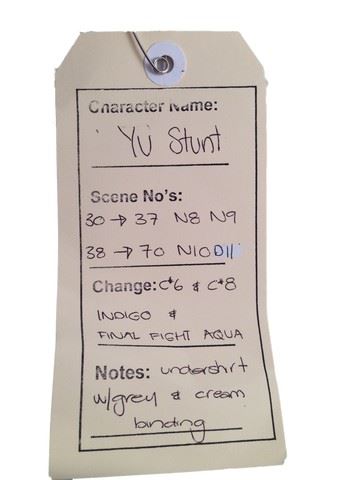 Character Name:
Yu Stunt
Scene No's:
30 → 37 N8 N9
38 → 70 N10 D11
Change: C*6 & C*8
INDIGO &
FINAL FIGHT AQUA
Notes: undershirt
w/grey & cream
binding